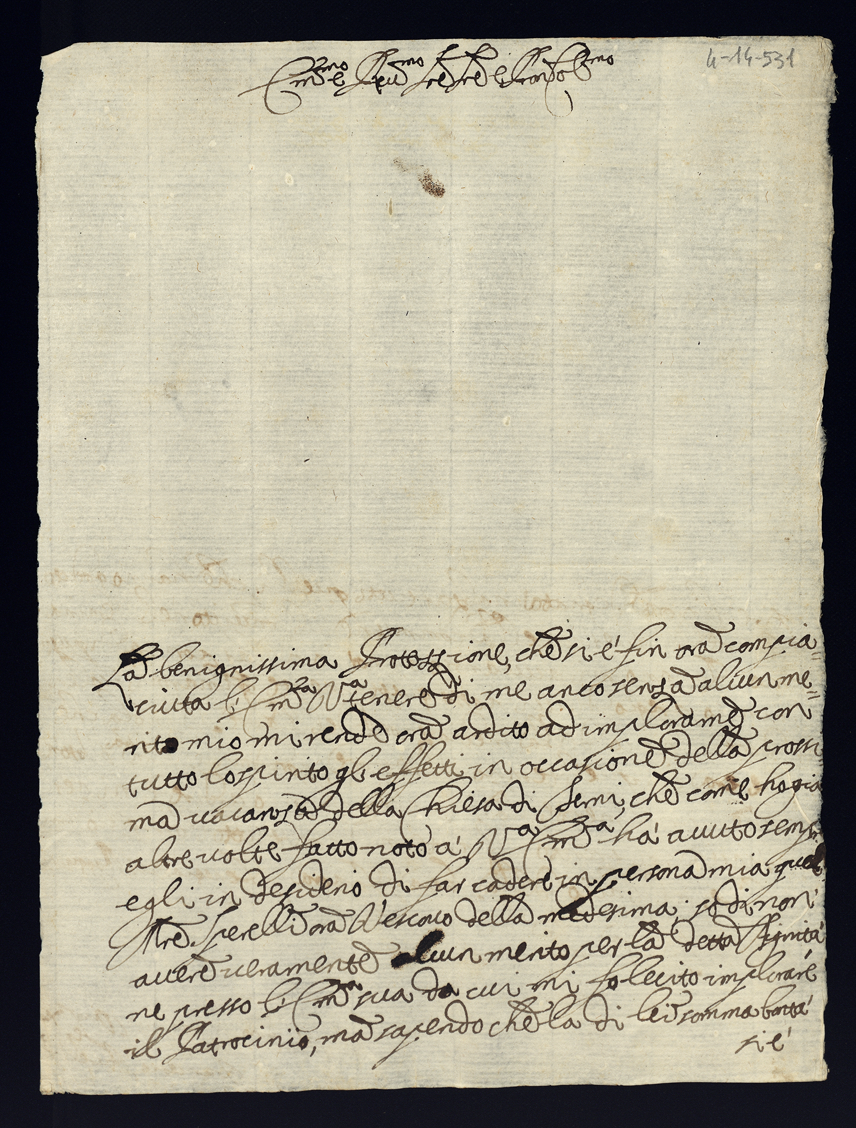 4-14-531
Em.mo e Reu.mo Sre Sre e Pron Col.mo
La benignissima Protezzione, che si è fin ora compia=
ciutta l'Em.za V.a tenere di me anco senza alcun me=
rito mio mi rende ora ardito ad implorarne con
tutto lo spirito gl'effetti in occasione della prossi
ma vacanza della Chiesa di Terni, che come ho gia
altre volte fatto noto à V.a Em.a hà avuto sempr
egli in desiderio di far cadere in persona mia quel
Mre. Sperelli ora Vescovo della medesima: so di non
avere veramente alcun merito per la detta Dignità
ne presso l'Em.a sua da cui mi fo lecito implorare
il Patrocinio, ma sapendo che la di lei somma bontà
si è